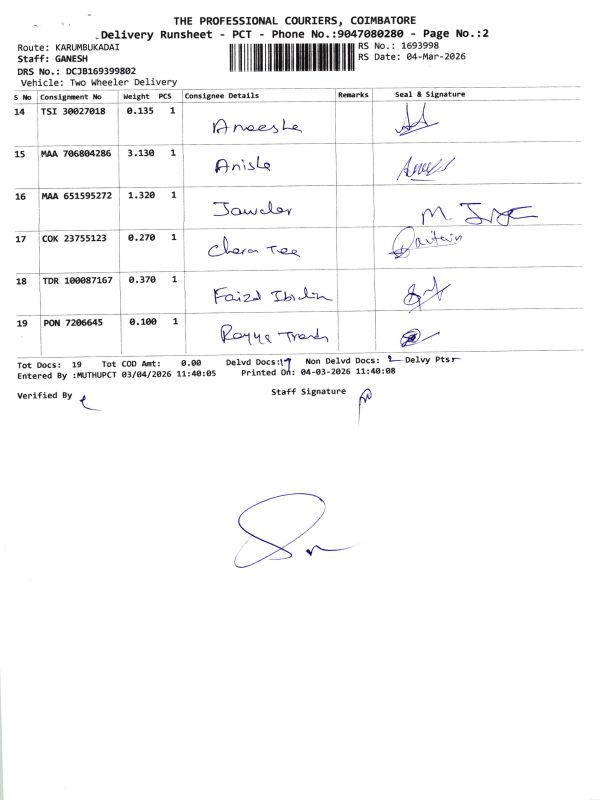 THE PROFESSIONAL COURIERS, COIMBATORE
Delivery Runsheet - PCT - Phone No.:9047080280 - Page No.:2
Route: KARUMBUKADAI RS No.: 1693998
Staff: GANESH RS Date: 04-Mar-2026
DRS No.: DCJB169399802
Vehicle: Two Wheeler Delivery
S No Consignment No Weight PCS Consignee Details Remarks Seal & Signature
14 TSI 30027018 0.135 1 Aneesha
15 MAA 706804286 3.130 1 Anisha
16 MAA 651595272 1.320 1
17 COK 23755123 0.270 1 Tee
18 TDR 100087167 0.370 1 Faizal
19 PON 7206645 0.100 1
Tot Docs: 19 Tot COD Amt: 0.00 Delvd Docs:17 Non Delvd Docs: 2 Delvy Pts:
Entered By :MUTHUPCT 03/04/2026 11:40:05 Printed On: 04-03-2026 11:40:08
Verified By Staff Signature